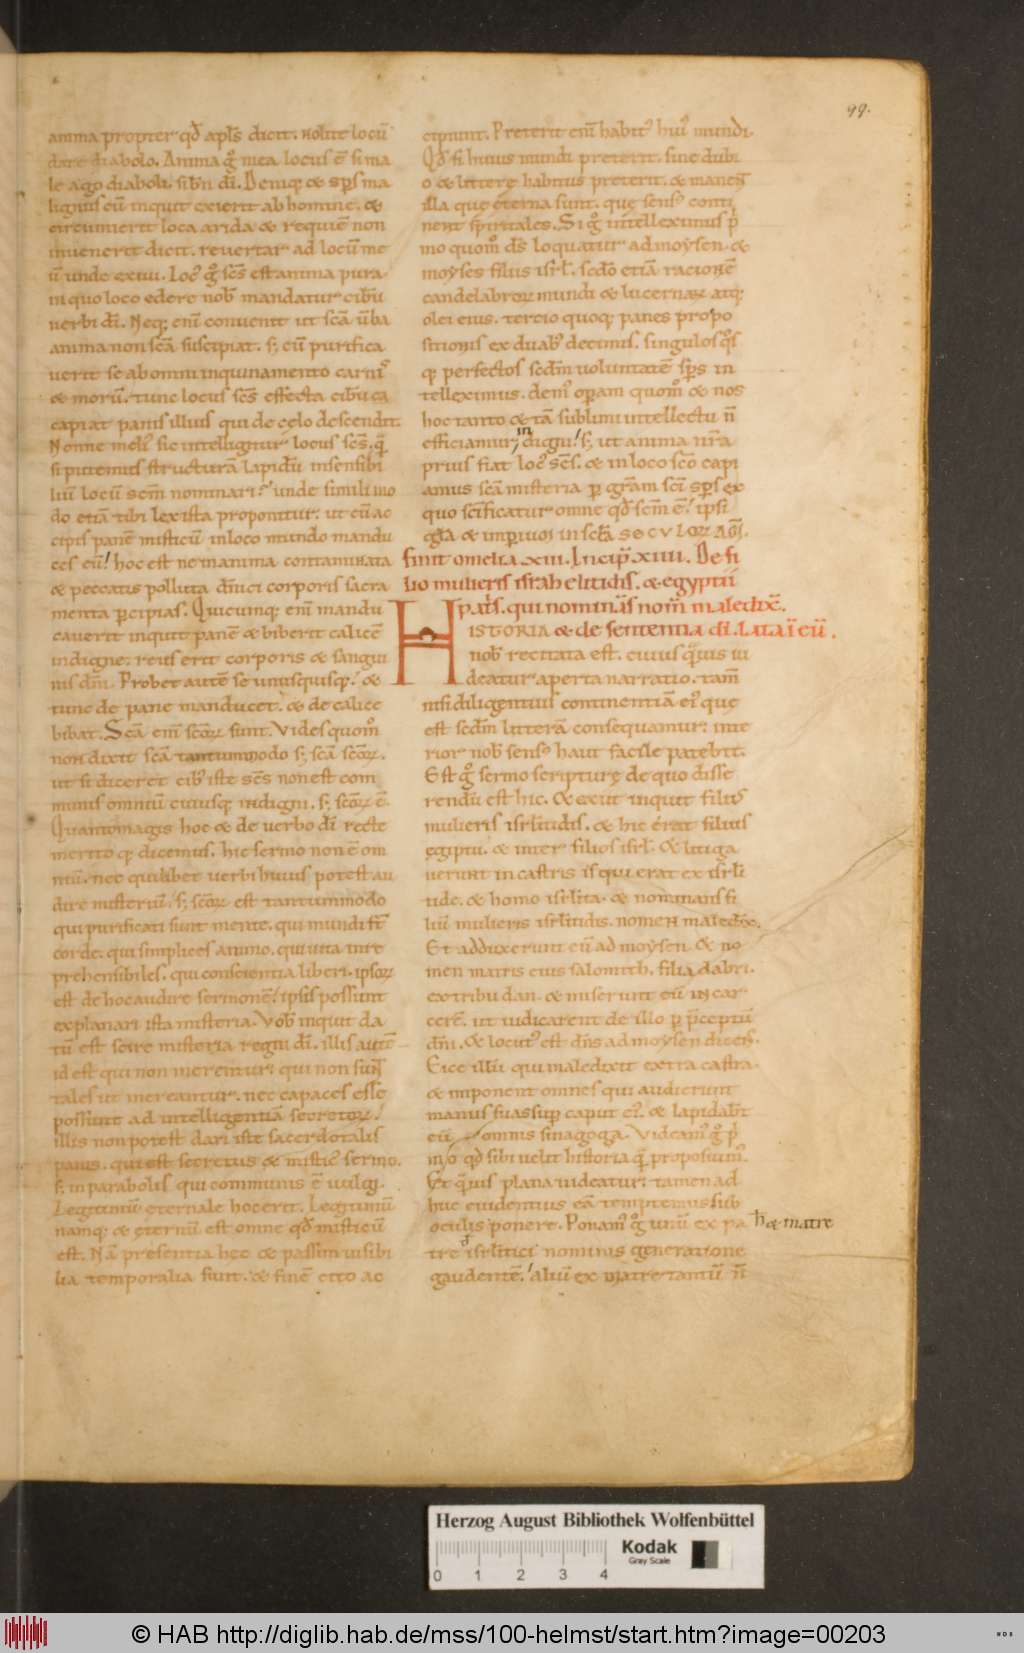 99.
anima propter qđ apłs dicit. Nolite locū
dare diabolo. Anima gͦ mea locus ē si ma
le ago diaboli. si bn̄ dī. Deniq; & sp̄s ma
lignus cū inquit exierit ab homine. &
circumierit loca arida & requiē non
inuenerit dicit. reuertar ad locū me
ū unde exiui. Loc᷒ gͦ sc̄s est anima pura.
in quo loco edere nob̄ mandatur cibū
uerbi dī. Neq; eni᷒ conuenit ut sc̄a ūba
anima non sc̄a suscipiat. s; cū purifica
uerit se ab omni inquinamento carni᷒
& morū. tunc locus sc̄s effecta cibū ca
capiat panis illius qui de celo descendit.
Nonne meli᷒ sic intelligitur locus sc̄s. q̄
si putemus structurā lapidū insensibi
liū locū sc̄m nominari? unde simili mo
do etiā tibi lex ista proponitur. ut cū ac
cipis panē misticū in loco mundo mandu
ces eū! hoc est ne in anima contaminata
& peccatis polluta dn̄ici corporis sacra
menta percipias. Quicumq; eni᷒ mandu
cauerit inquit panē & biberit calicē
indigne. reus erit corporis & sangui
nis dn̄i. Probet autē se unusquisq;. &
tunc de pane manducet. & de calice
bibat. Scā eni᷒ sc̄oꝝ sunt. Vides quom̊
non dixit sc̄a tantummodo s; sc̄a sc̄oꝝ.
ut si diceret cib᷒ iste sc̄s non est com
munis omniū cuiusq; indigni. s; sc̄oꝝ ē.
Quantomagis hoc & de uerbo dī recte
merito q; dicemus. hic sermo non ē om
niū. nec quilibet uerbi huius potest au
dire misteriū. s; sc̄oꝝ est tantummodo
qui purificati sunt mente. qui mundi st̄
corde. qui simplices animo. qui uita inre
prehensibiles. qui conscientia liberi. ipsoꝝ
est de hoc audire sermonē! ipsis possunt
explanari ista misteria. Vob̄ inquit da
tū est scire misteria regni dī. illis autē
id est qui non merentur. qui non sunt
tales ut mereantur. nec capaces esse
possunt ad intelligentiā secretoꝝ!
illis non potest dari iste sacerdotalis
panis. qui est secretus & mistic᷒ sermo.
s; in parabolis qui communis ē uulgi.
Legitimū eternale hoc erit. Legitimū
namq; & eternū est omne qđ misticū
est. Nā presentia hec & passim uisibi
lia temporalia sunt. & finē cito ac
cipiunt. Preterit eni᷒ habit᷒ hui᷒ mundi.
Qđ si huius mundi preterit. sine dubi
o & litterę habitus preterit. & manent
illa que eterna sunt. que sens᷒ conti
nent spiritales. Si gͦ intelleximus p̄
mo quom̊ dn̄s loquatur ad moysen. &
moyses filiis isrł. sedo etiā racionē
candelabroꝝ mundi & lucernaꝝ atq;
olei eius. tercio quoq; panes propo
sitionis ex duab᷒ decimis. singulos qͦs
q; perfectos sedm voluntatē sp̄s in
telleximus. dem᷒ operam quom̊ & nos
hoc tanto & tā sublimi intellectu n̄
efficiamur indigni! s; ut anima nr̄a
prius fiat loc᷒ sc̄s. & in loco sc̄o capi
amus sc̄a misteria p gr̄am sc̄i sp̄s ex
quo sc̄ificatur omne qđ sc̄m ē! ipsi
gła & imperiū in sc̄ła SECVLOꝝ AM̄.
finit omelia .xiii. Incip̄ .xiiii. De fi
lio mulieris israhelitidis. & egyptii
patis. qui nominans nom̄ maledix̄.
& de sententia dī. lata ī eū.
HISTORIA
nob̄ recitata est. cuius q̄uis ui
deatur aperta narratio. tam̄
nisi diligentius continentiā ei᷒ que
est sedm litterā consequamur. inte
rior nob̄ sens᷒ haut facile patebit.
Est gͦ sermo scripturę de quo disse
rendū est hic. & exiit inquit fili᷒
mulieris isrłitidis. & hic erat filius
egiptii. & inter filios isrł. & litiga
uerunt in castris is qui erat ex isrłi
tide. & homo isrłita. & nominans fi
liū mulieris isrłitidis. nomen maledix̄.
Et adduxerunt eū ad moysen. & no
men matris eius salomith. filia dabri.
ex tribu dan. & miserunt eū in car
cerē. ut iudicarent de illo p p̄ceptū
dn̄i. & locut᷒ est dn̄s ad moysen dicens.
Eice illū qui maledixit extra castra.
& imponent omnes qui audierunt
manus suas sup caput ei᷒. & lapidabt̄
eū omnis sinagoga. Videam᷒ gͦ p̄
mo qđ sibi uelit historia q̄ proposuim᷒.
Et q̄uis plana uideatur. tamen ad
huc euidentius eā temptemus sub
oculis ponere. Ponam᷒ gͦ unū ex pa
h̄ & matre
tre isrłitici nominis generatione
gaudentē! aliū ex matre tantū n̄
Herzog August Bibliothek Wolfenbüttel
0 1 2 3 4
Kodak
Gray Scale
© HAB http://diglib.hab.de/mss/100-helmst/start.htm?image=00203